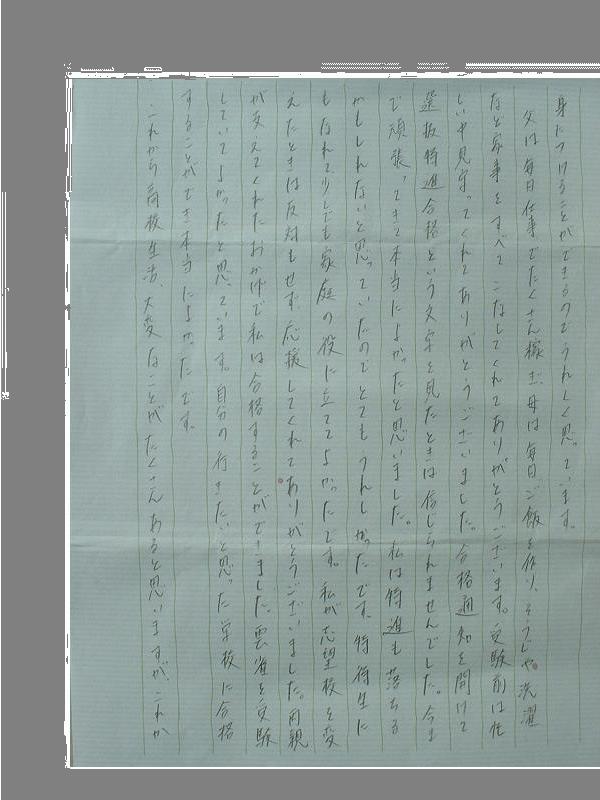 身につけることができるのでうれしく思っています。
父は毎日仕事でたくさん稼ぎ、母は毎日ご飯を作り、そうじや洗濯
など家事をすべてこなしてくれてありがとうございます。受験前は忙
しい中見守ってくれてありがとうございました。合格通知を開けて
選抜特進合格という文字を見たときは信じられませんでした。今ま
で頑張ってきて本当によかったと思いました。私は特進も落ちる
かもしれないと思っていたのでとてもうれしかったです。特待生に
もなれて少しでも家庭の役に立ててよかったです。私が志望校を変
えたときは反対もせず応援してくれてありがとうございました。両親
が支えてくれたおかげで私は合格することができました。雲雀を受験
していてよかったと思っています。自分の行きたいと思った学校に合格
することができ本当によかったです。
これから高校生活、大変なことがたくさんあると思いますが、これか